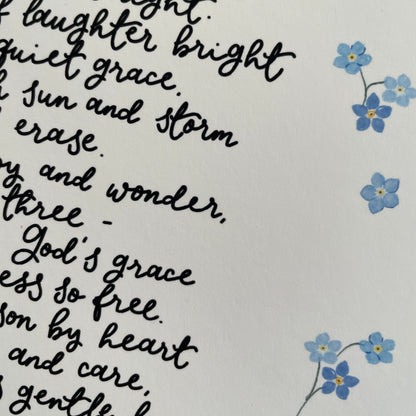 light.
of laughter bright
quiet grace.
sun and storm
erase.
and wonder,
three -
God's grace
so free.
by heart
and care,
gentle